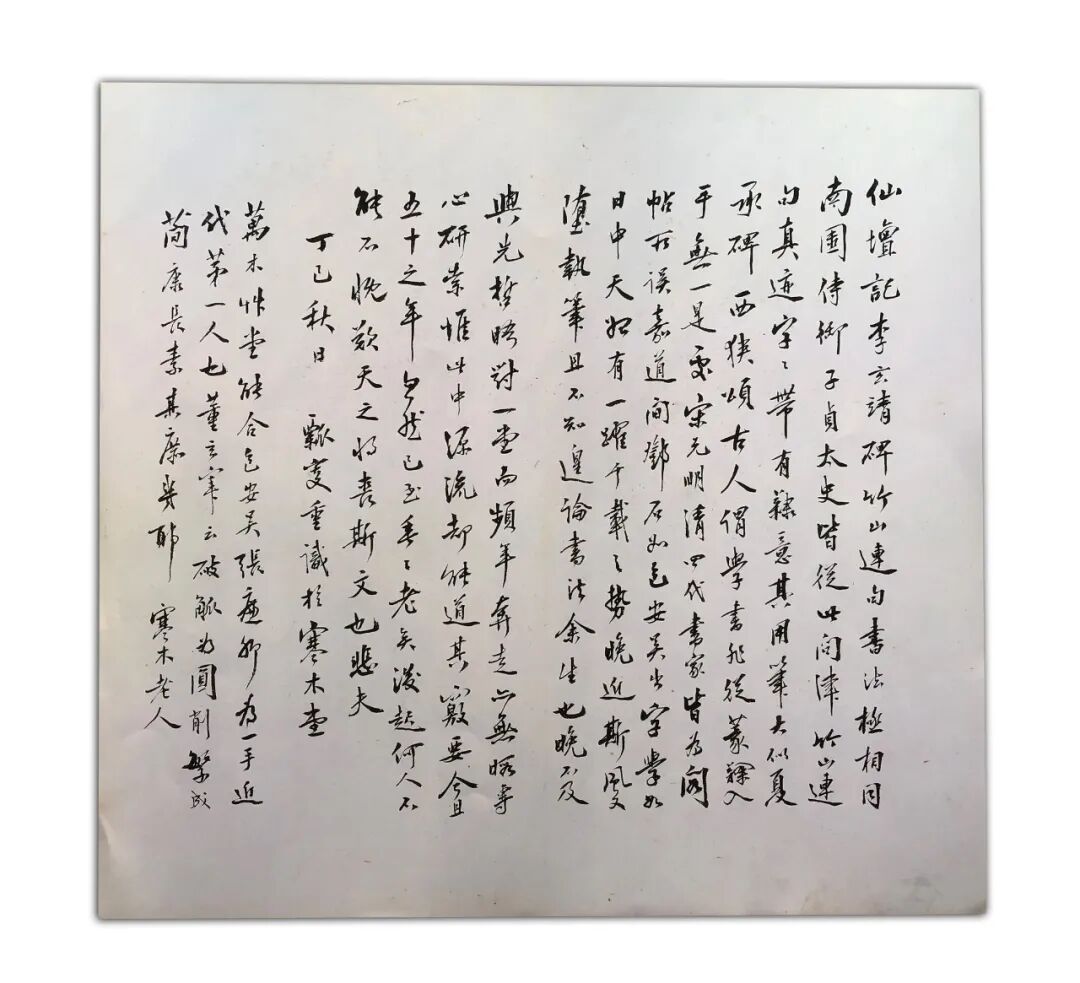 仙壇記李玄靖碑竹山連句書法極相同
南園侍御子貞太史皆從此問津竹山連
句真迹字〻帶有隸意其用筆大似夏
承碑西狹頌古人謂學書非從篆隸入
手無一是處宋元明清四代書家皆為閣
帖所誤嘉道間鄧石如包安吳出字學如
日中天如有一躍千載之勢晚近斯風又
墮執筆且不知遑論書法余生也晚不及
與先哲晤對一堂而頻年奔走亦無暇專
心研索惟此中源流却能道其竅要今且
五十之年忽然已至垂〻老矣後起何人不
能不慨歎天之將喪斯文也悲夫
丁巳秋日 瓢叟重識於寒木堂
萬木艸堂能合包安吳張廉卿為一手近
代第一人也董玄宰云破觚為圓削繁成
簡康長素其庶幾耶 寒木老人